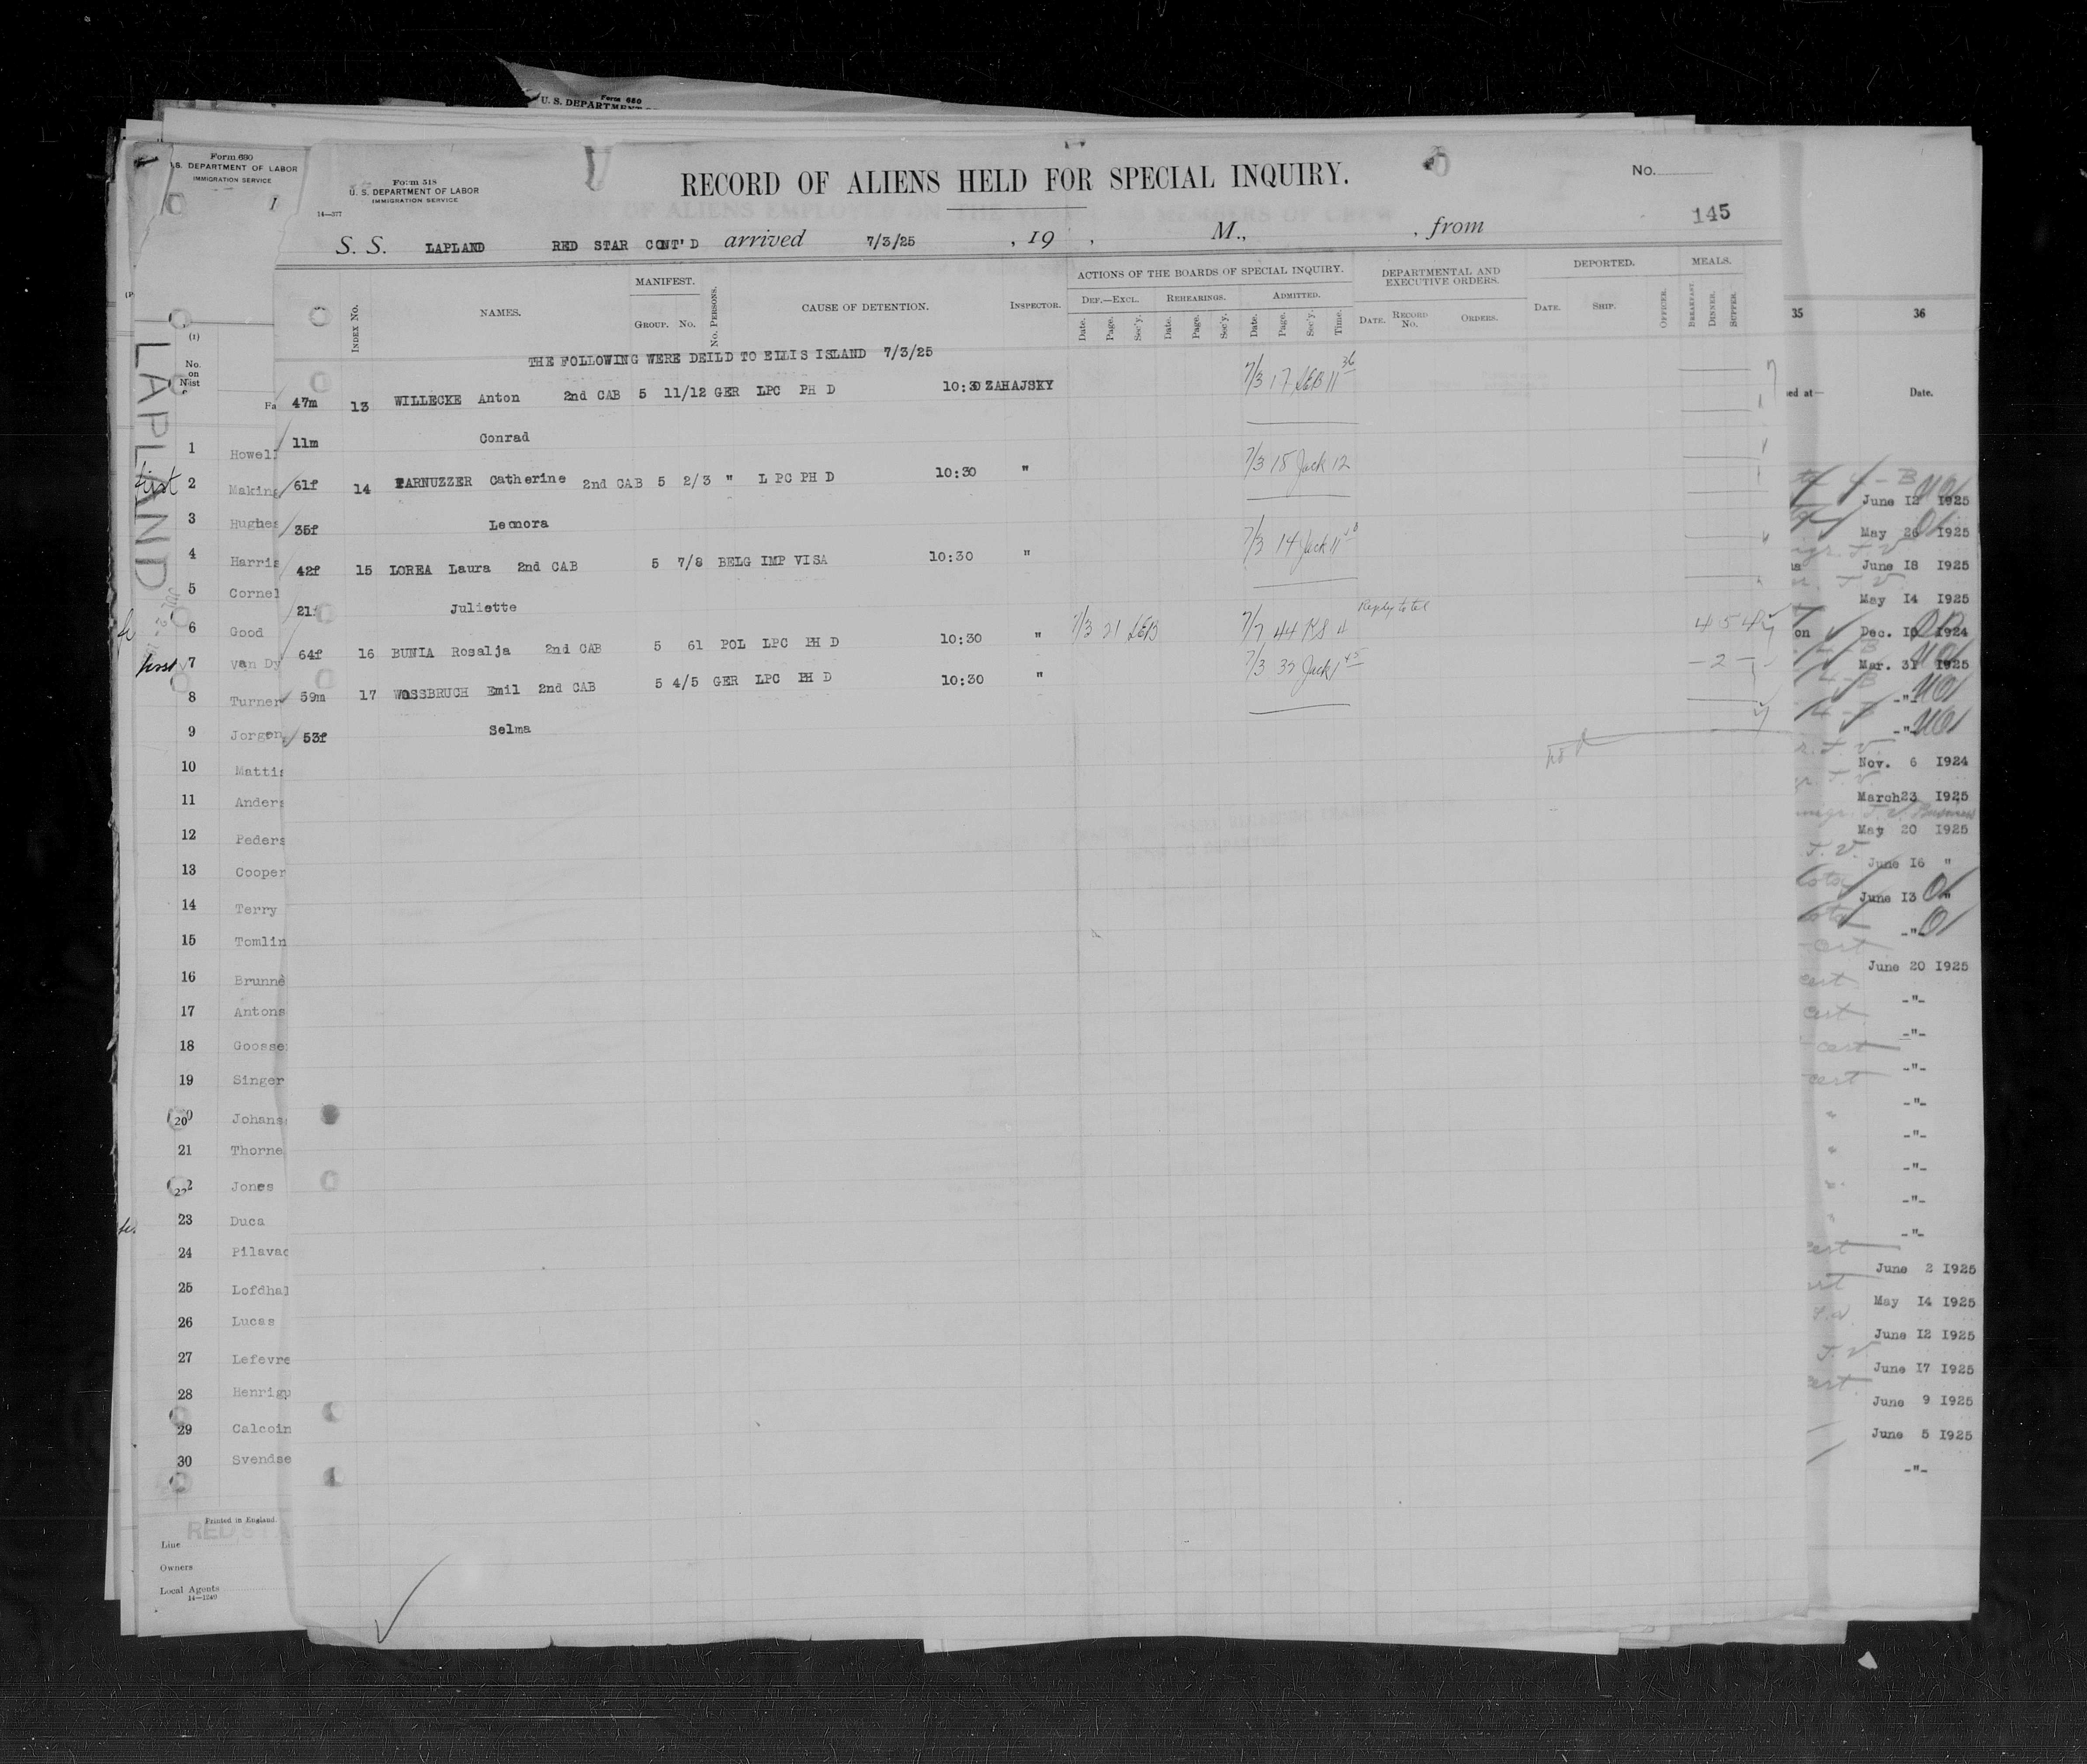 Form 680
U. S. DEPARTMENT
Form 680
U.S. DEPARTMENT OF LABOR
IMMIGRATION SERVICE
Form 518
U. S. DEPARTMENT OF LABOR
IMMIGRATION SERVICE
14—377
RECORD OF ALIENS HELD FOR SPECIAL INQUIRY.
No.
145
S. S. LAPLAND RED STAR CONT'D arrived 7/3/25 , 19 , M., , from
INDEX No.
NAMES.
MANIFEST.
GROUP. No.
No. PERSONS.
CAUSE OF DETENTION.
INSPECTOR.
ACTIONS OF THE BOARDS OF SPECIAL INQUIRY.
DEF.—EXCL. REHEARINGS. ADMITTED.
Date. Page. Sec'y. Date. Page. Sec'y. Date. Page. Sec'y. Time.
DEPARTMENTAL AND EXECUTIVE ORDERS.
DATE. RECORD No. ORDERS.
DEPORTED.
DATE. SHIP. OFFICER.
MEALS.
BREAKFAST. DINNER. SUPPER.
THE FOLLOWING WERE DEILD TO ELLIS ISLAND 7/3/25
47m 13 WILLECKE Anton 2nd CAB 5 11/12 GER LPC PH D 10:30 ZAHAJSKY 7/3 17 LEB 11 36
11m Conrad
61f 14 PARNUZZER Catherine 2nd CAB 5 2/3 " L PC PH D 10:30 " 7/3 18 Jack 12
35f Leonora
42f 15 LOREA Laura 2nd CAB 5 7/8 BELG IMP VISA 10:30 " 7/3 14 Jack 11
21f Juliette
64f 16 BUNIA Rosalja 2nd CAB 5 61 POL LPC PH D 10:30 " 7/3 31 LEB 7/7 44 KS Reply to tel 4 5 4
59m 17 WOSSBRUCH Emil 2nd CAB 5 4/5 GER LPC PH D 10:30 " 7/3 33 Jack 1 45 – 2 –
53f Selma
LAPLAND
(1)
No. on List
1 Howell
2 Making
3 Hughes
4 Harris
5 Cornel
6 Good
7 Van Dy
8 Turner
9 Jorgen
10 Mattis
11 Anders
12 Peders
13 Cooper
14 Terry
15 Tomlin
16 Brunne
17 Antons
18 Goosse
19 Singer
20 Johans
21 Thorne
22 Jones
23 Duca
24 Pilavac
25 Lofdhal
26 Lucas
27 Lefevre
28 Henriqu
29 Calcoin
30 Svendse
first
first
Printed in England.
RED STA
Line
Owners
Local Agents
14—1240
35 36
ned at— Date.
June 12 1925
May 26 1925
June 18 1925
May 14 1925
on Dec. 10 1924
Mar. 31 1925
-"-
-"-
Nov. 6 1924
March23 1925
May 20 1925
June 16 "
June 13 "
-"-
June 20 1925
-"-
-"-
-"-
-"-
-"-
-"-
-"-
-"-
June 2 1925
May 14 1925
June 12 1925
June 17 1925
June 9 1925
June 5 1925
-"-